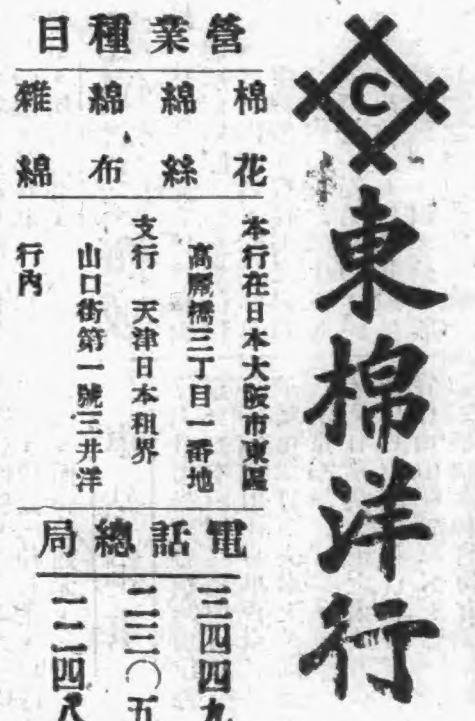 C
東棉洋行
營業種目
棉花
綿絲
綿布
雜綿
本行在日本大阪市東區
高麗橋三丁目一番地
支行　天津日本租界
山口街第一號三井洋
行內
電話總局
三四四九
二三〇五